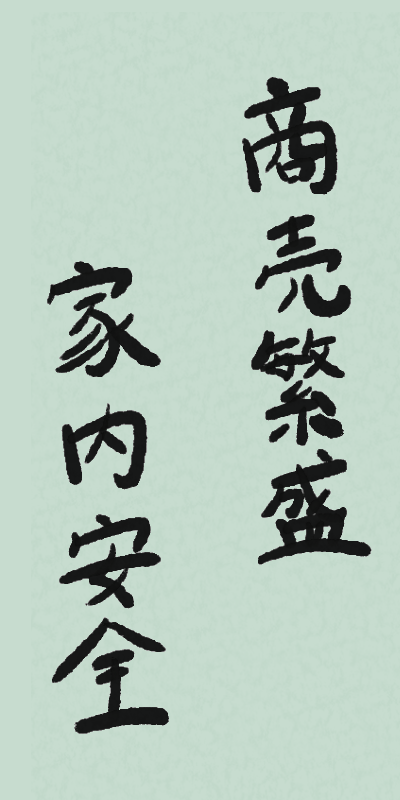 商売繁盛
家内安全